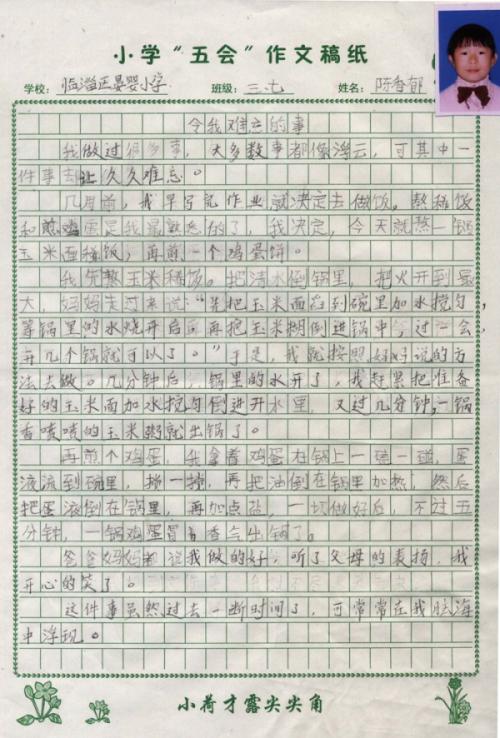 小学“五会”作文稿纸
学校：临淄区晏婴小学 班级：三.七 姓名：陈香郁
令我难忘的事
我做过很多事，大多数事都像浮云，可其中一
件事却让久久难忘。
几月前，我早写完作业就决定去做饭。熬稀饭
和煎鸡蛋是我最熟悉的了，我决定，今天就熬一锅
玉米面稀饭，再煎一个鸡蛋饼。
我先熬玉米稀饭。把清水倒锅里，把火开到最
大，妈妈走过来说：“先把玉米面舀到碗里加水搅匀，
等锅里的水烧开后再把玉米糊倒进锅中，过一会
再几个锅就可以了。”于是，我就按照妈妈说的方
法去做。几分钟后，锅里的水开了，我赶紧把准备
好的玉米面加水搅匀倒进开水里，又过几分钟，一锅
香喷喷的玉米粥就出锅了。
再煎个鸡蛋，我拿着鸡蛋在锅上一碰一碰，蛋
液流到碗里，搅一搅，再把油倒在锅里加热，然后
把蛋液倒在锅里，再加点盐，一切做好后，不过五
分钟，一锅鸡蛋冒着香气出锅了。
爸爸妈妈都说我做的好，听了父母的表扬，我
开心的笑了。
这件事虽然过去一断时间了，可常常在我脑海
中浮现。
小荷才露尖尖角